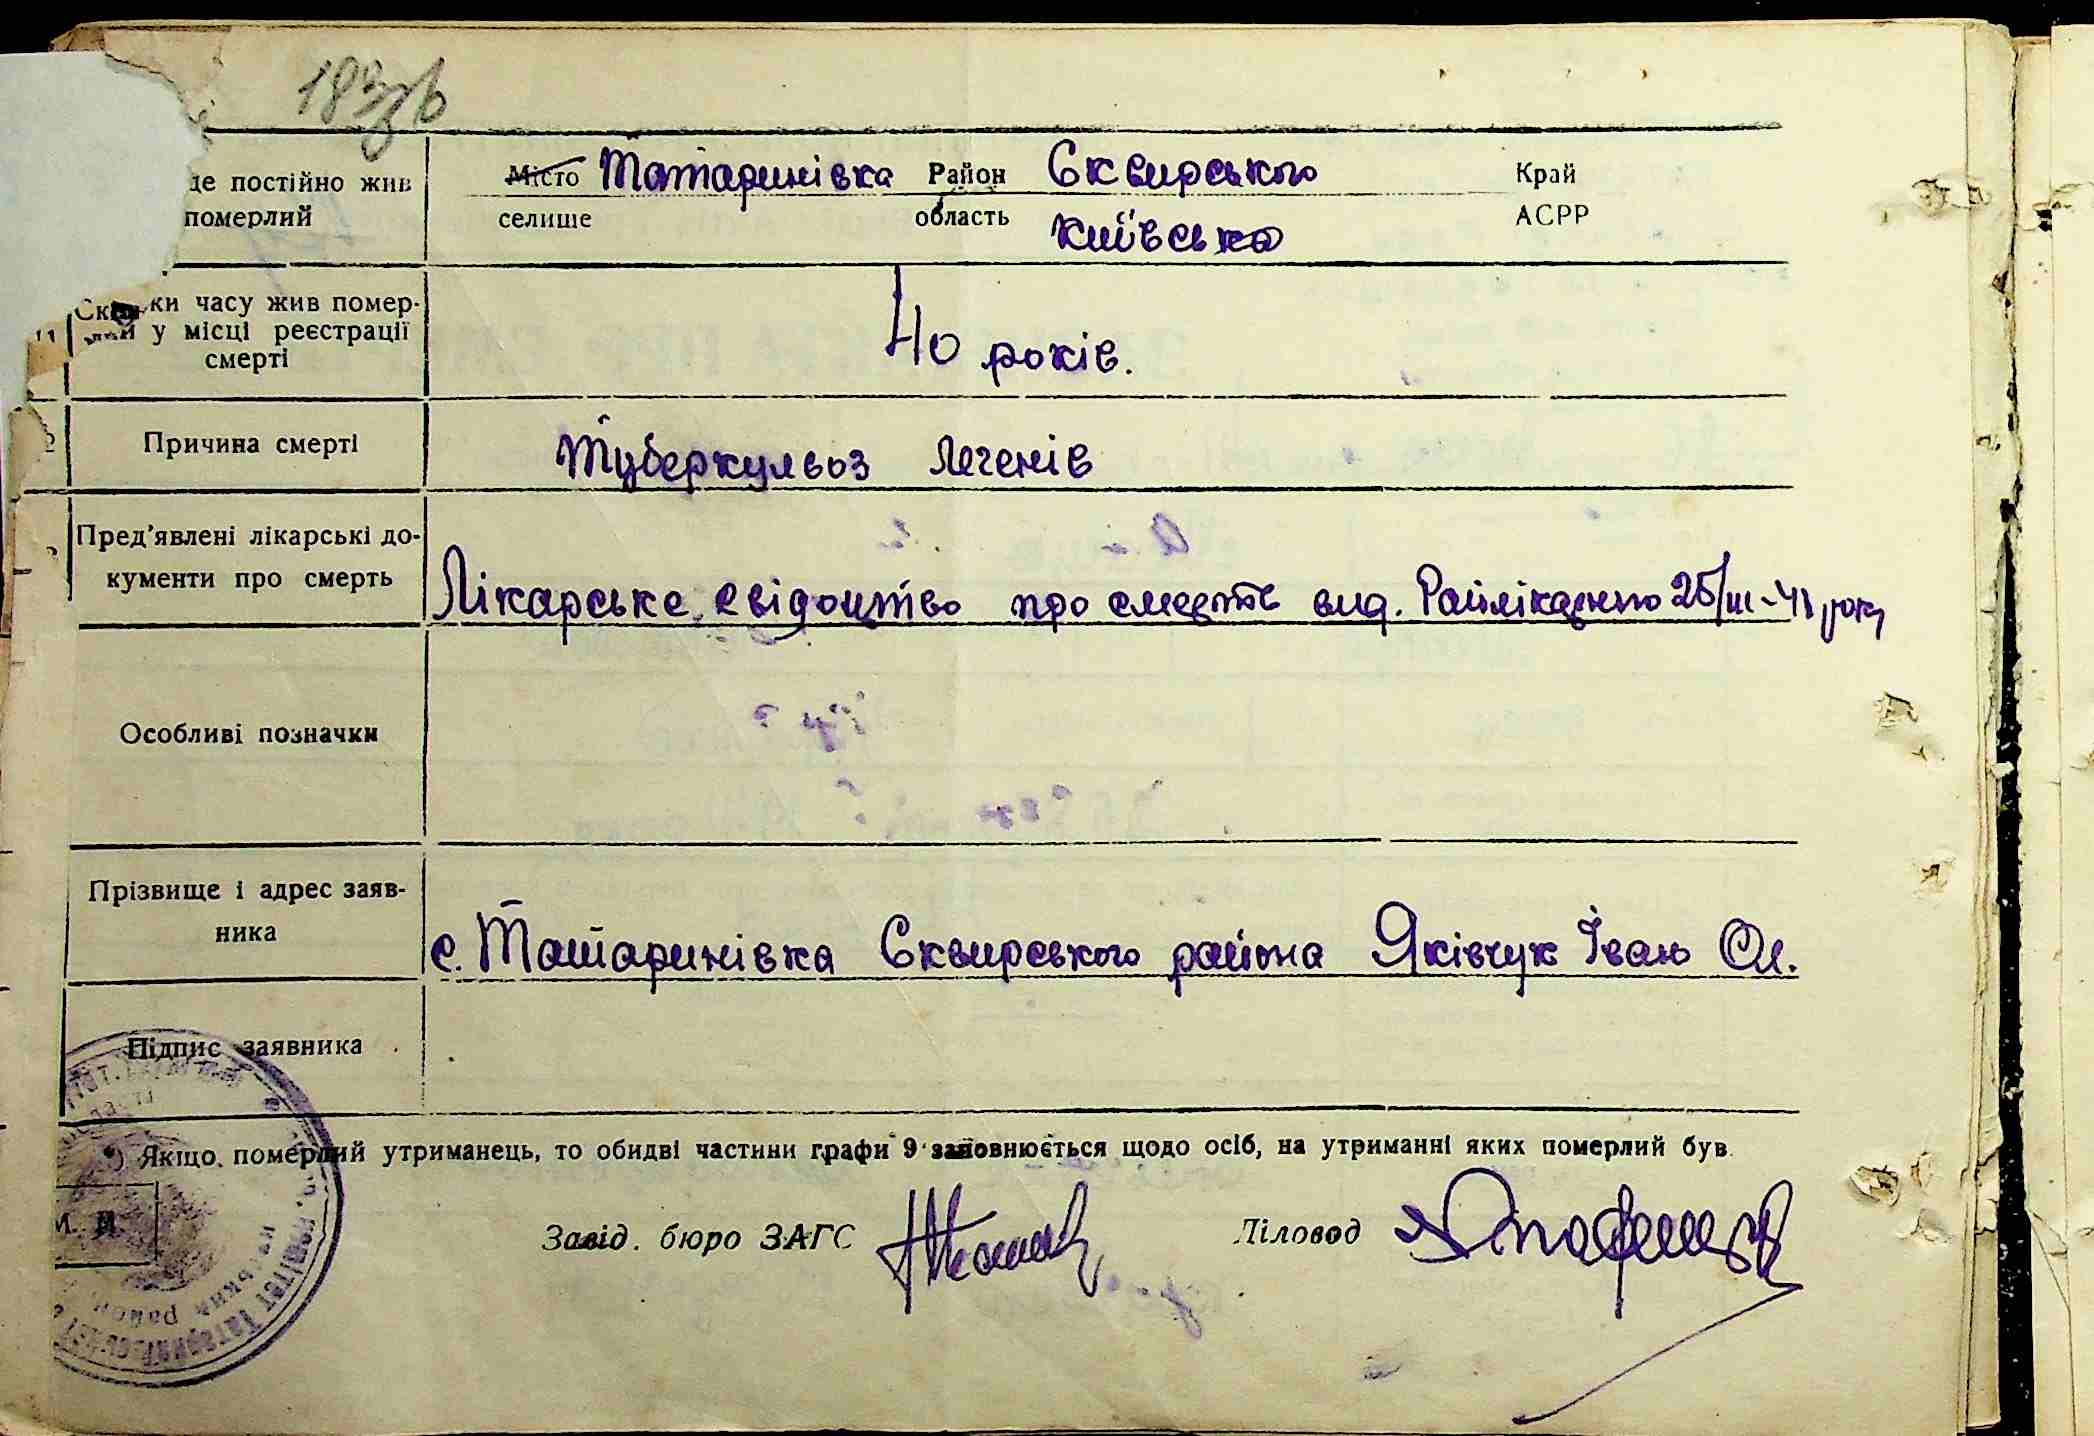 183зв
де постійно жив померлий
Місто Татаринівка Район Сквирського Край
селище область Київська АСРР
11 Скільки часу жив помер-
лий у місці реєстрації
смерті
40 років.
Причина смерті
Туберкульоз легенів
Пред'явлені лікарські до-
кументи про смерть
Лікарське свідоцтво про смерть вид. 25/III-41 року
Особливі позначки
Прізвище і адрес заяв-
ника
с. Татаринівка Сквирського района Яківчук Іван Ол.
Підпис заявника
Якщо померлий утриманець, то обидві частини графи 9 заповнюється щодо осіб, на утриманні яких померлий був.
М. П.
Завід. бюро ЗАГС Діловод